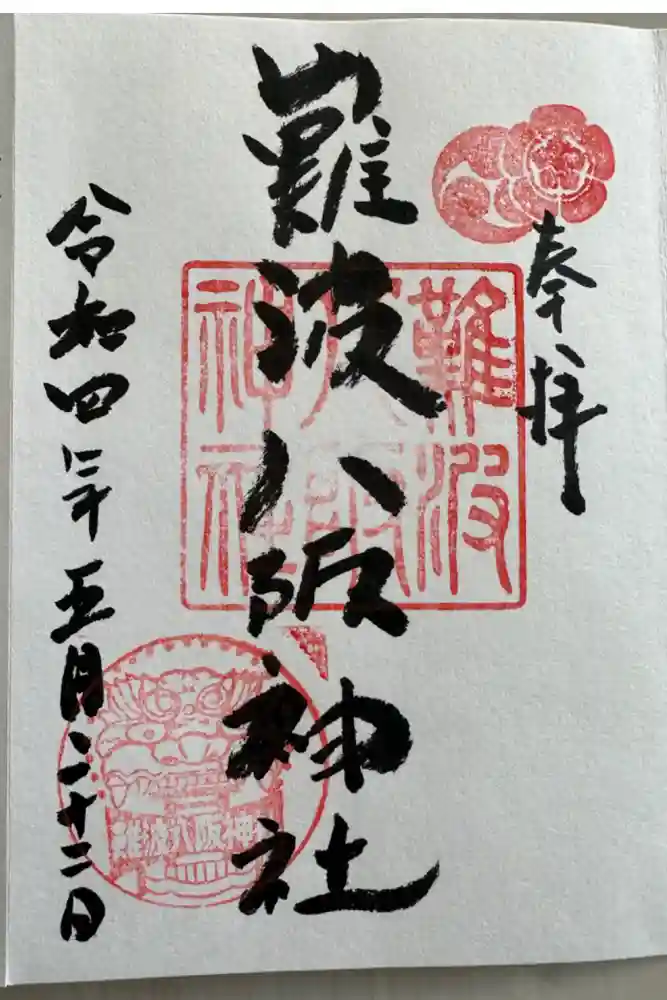 奉拝
難波八阪神社
難波八阪神社
令和四年五月二十二日
難波八阪神